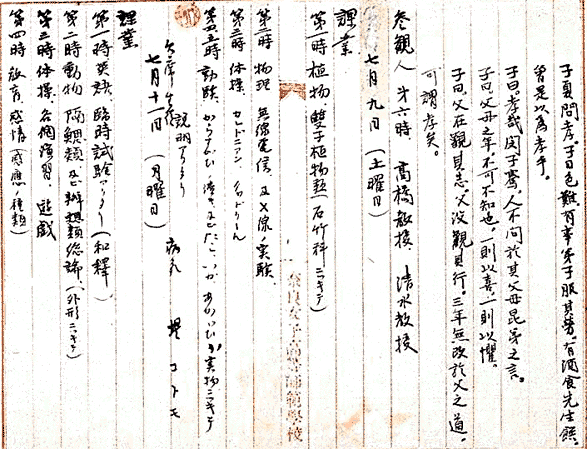 子夏問孝。子曰色難。有事弟子服其勞。有酒食先生饌。
曾是以為孝乎。
子曰。孝哉閔子騫。人不間於其父母昆弟之言。
子曰。父母之年。不可不知也。一則以喜。一則以懼。
子曰。父在觀其志。父没觀其行。三年無改於父之道。
可謂孝矣。
参観人 第六時 高橋教授 清水教授
七月九日 (土曜日)
課業
第一時 植物 双子植物類(石竹科ニツキテ)
第二時 物理 無線電信、及X線ノ実験
第三時 体操
第四時 動物 実物ニツキテ
欠席生徒 病気 コトモ
説明アリタリ
七月十一日 (月曜日)
課業
第一時 英語 臨時試験アリタリ(和釋)
第二時 動物 有鰓類及ビ 類総論、(外形ニツキテ)
第三時 体操、各個演習、遊戯
第四時 教育 感情(感應ノ種類)
奈良女子高等師範學校